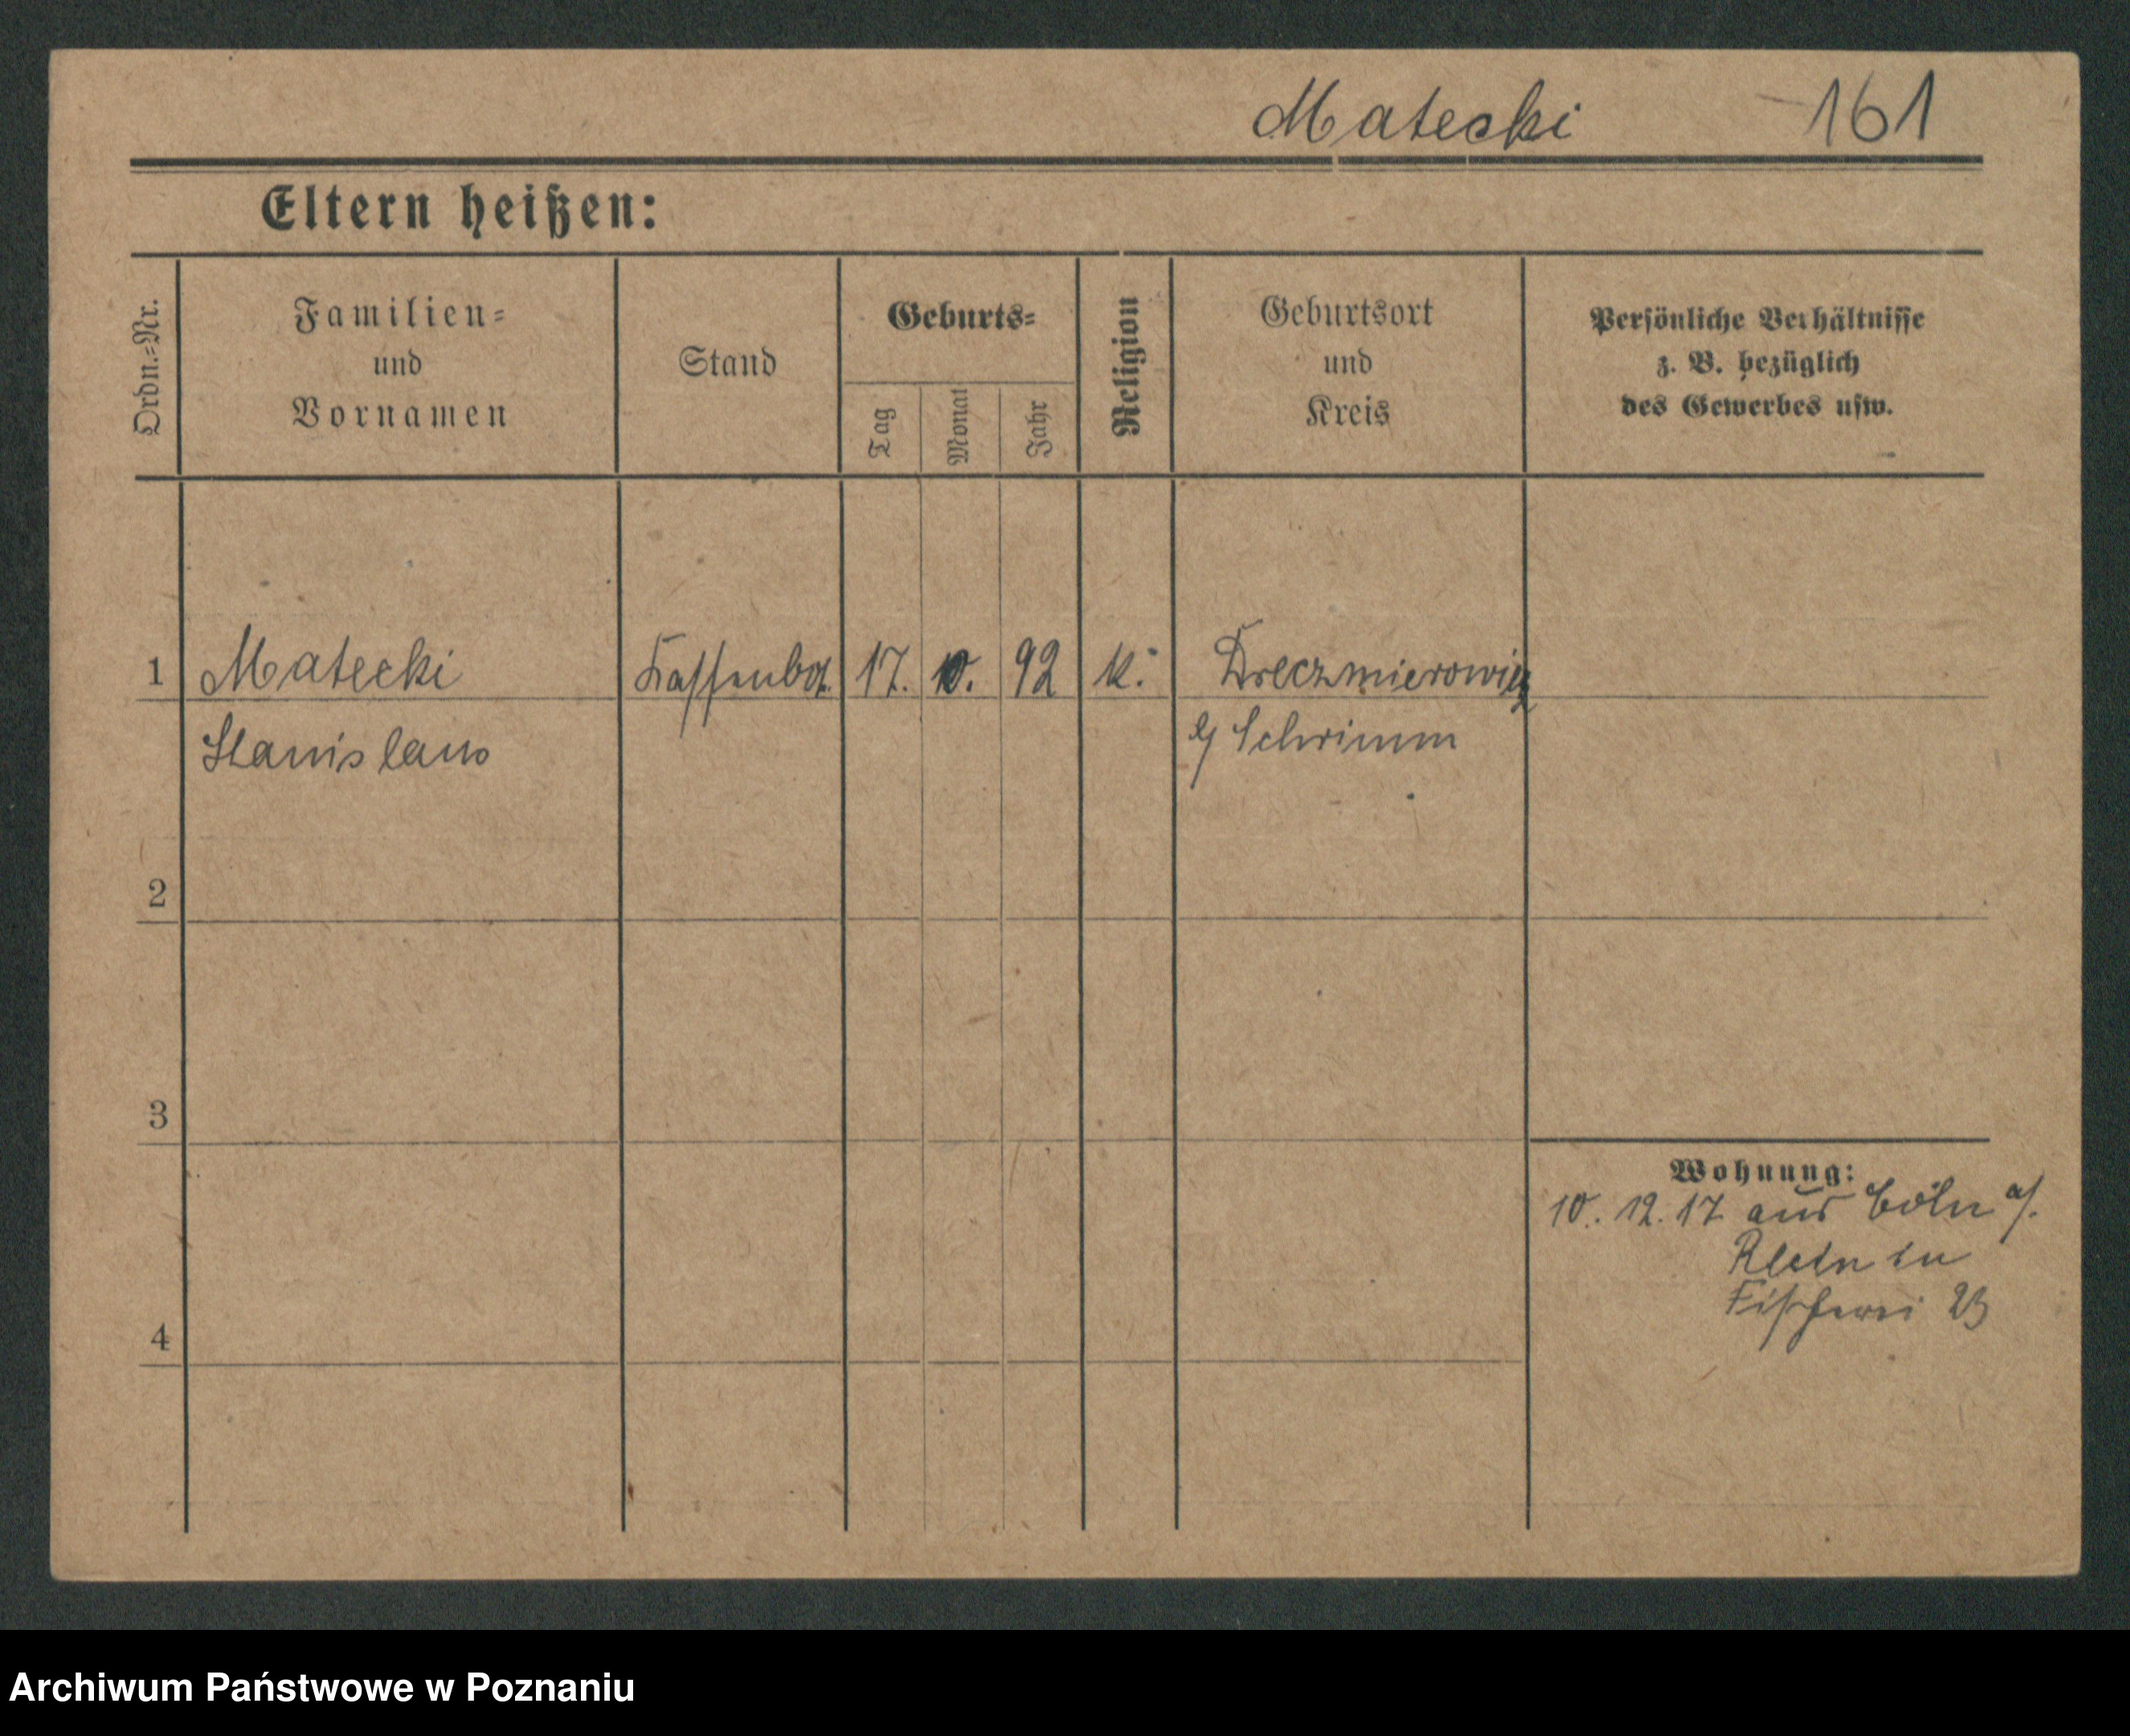 Matecki 161
Eltern heißen:
Ordn.=Nr.
Familien=
und
Vornamen
Stand
Geburts=
Tag
Monat
Jahr
Religion
Geburtsort
und
Kreis
Persönliche Verhältnisse
z. B. bezüglich
des Gewerbes usw.
1 Matecki Kassenbot. 17. 10. 92 k.
Stanislaus Schrimm
2
3
4
Wohnung:
10. 12. 17 aus Cöln a/.
Rhein in
Fischerei 23
Archiwum Państwowe w Poznaniu